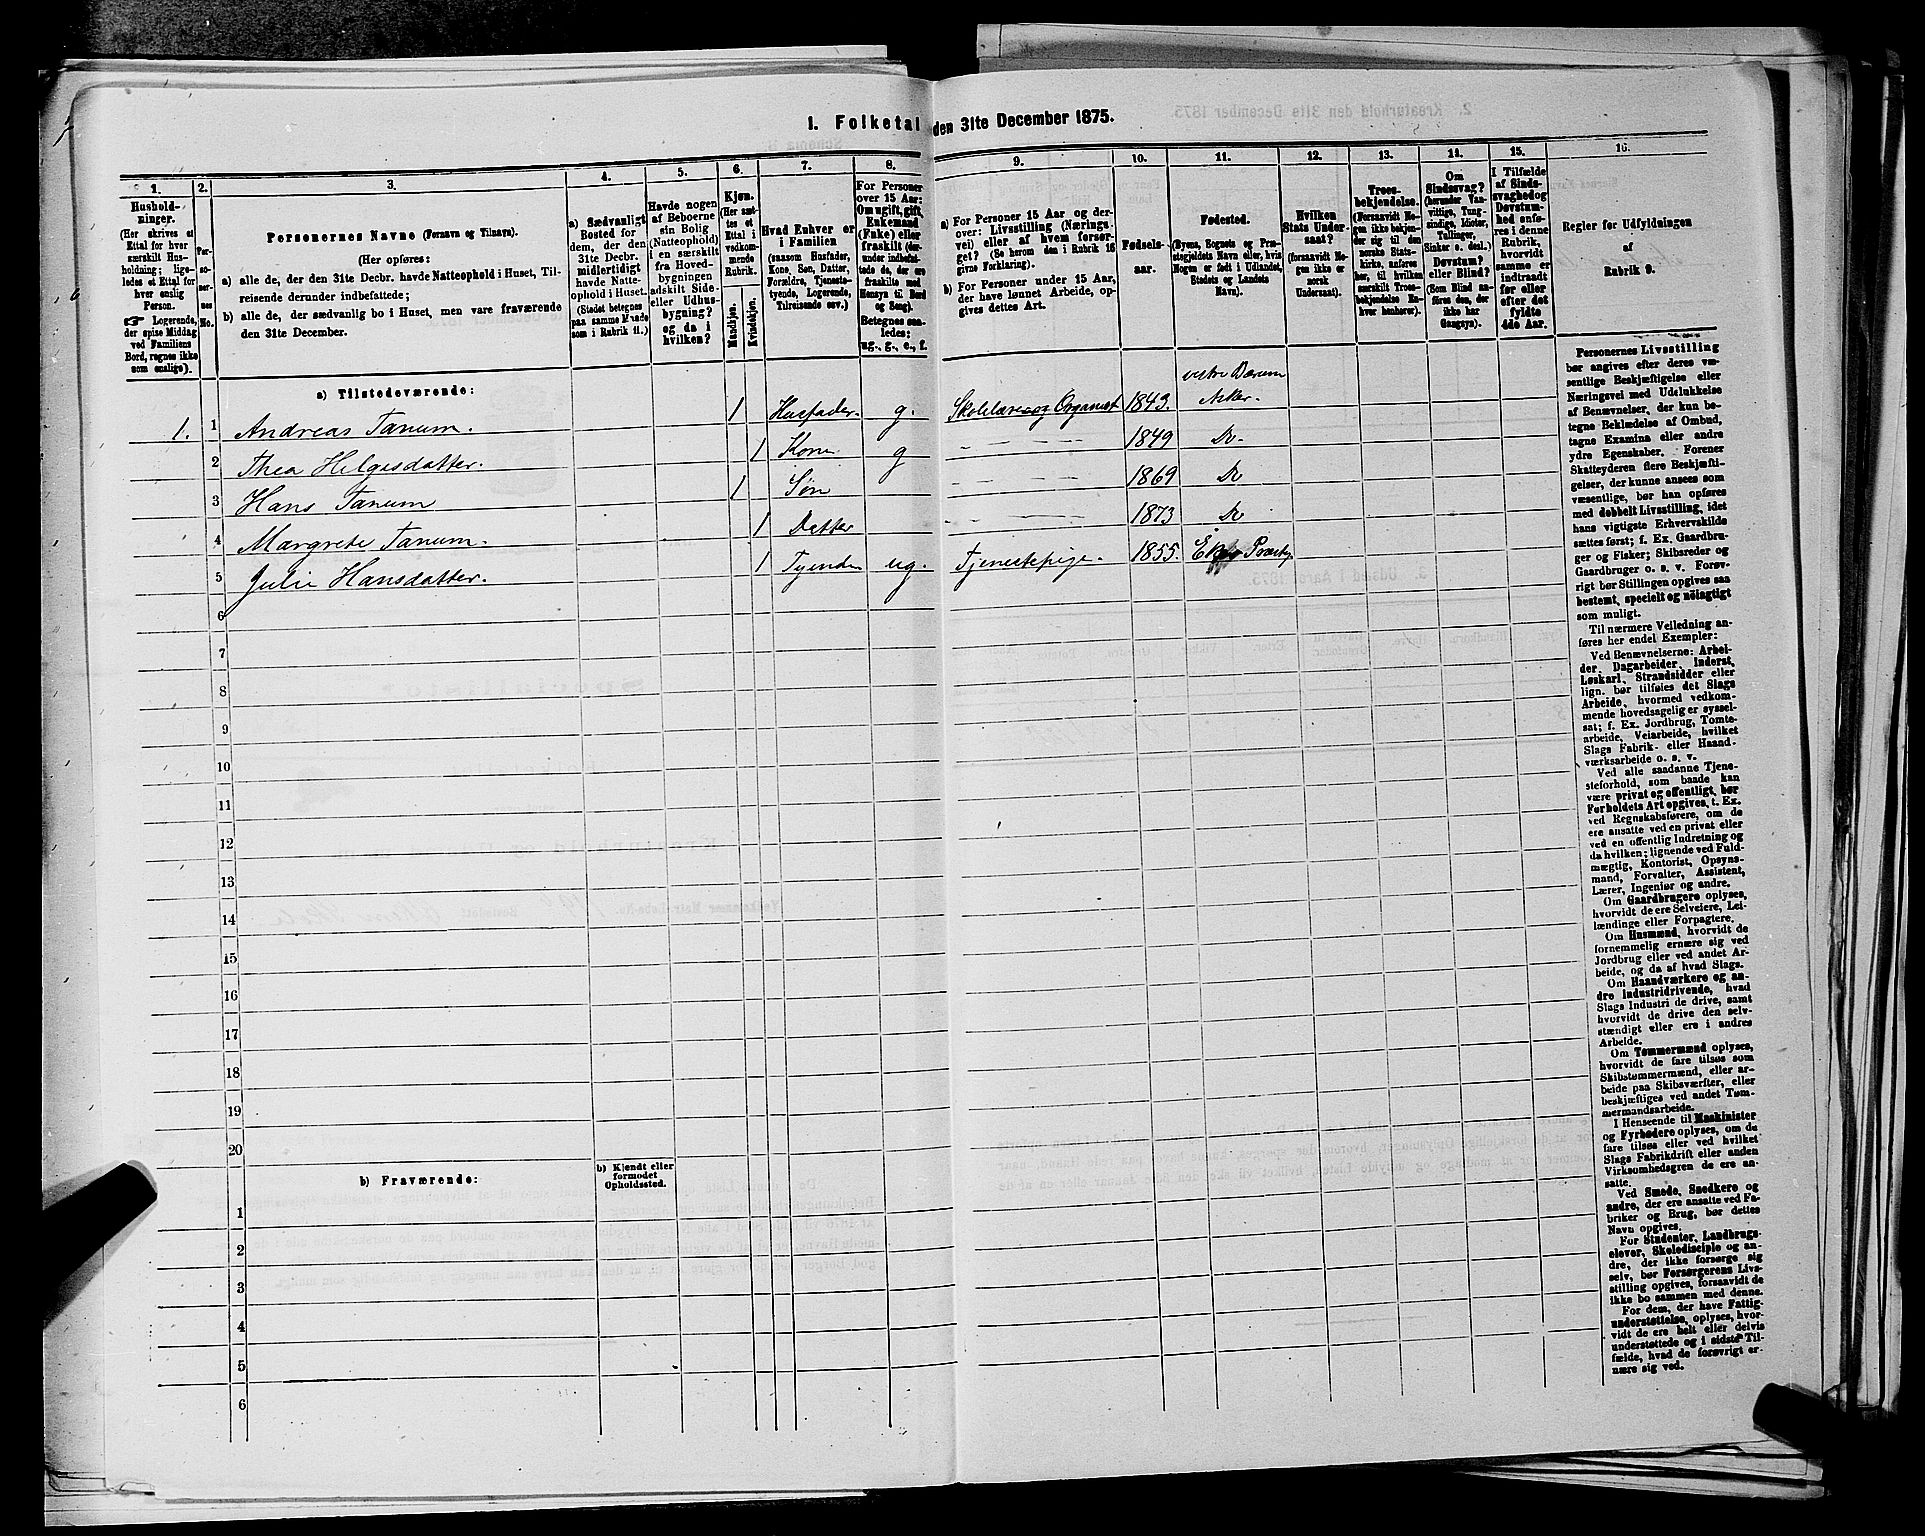 1. Folketal den 31te December 1875.
1. 2. 3. 4. 5. 6. 7. 8. 9. 10. 11. 12. 13. 14. 15. 16.
Hushold-
ninger.
(Her skrives et
Ettal for hver
særskilt Hus-
holdning; lige-
ledes et Ettal for
hver enslig
Person.
☞ Logerende,
der spise Middag
ved Familiens
Bord, regnes ikke
som enslige).
Personernes Navne (Fornavn og Tilnavn).
(Her opføres:
a) alle de, der den 31te Decbr. havde Natteophold i Huset, Til-
reisende derunder indbefattede;
b) alle de, der sædvanlig bo i Huset, men vare fraværende
den 31te December.
a) Sædvanligt
Bosted for
dem, der den
31te Decbr.
midlertidigt
havde Natte-
ophold i Huset.
(Stedet betegnes
paa samme Maade
som i Rubrik 11.)
Havde nogen
af Beboerne
sin Bolig
(Natteophold)
i en særskilt
fra Hoved-
bygningen
adskilt Side-
eller Udhus-
bygning?
og da i
hvilken?
Kjøn.
(Her sæt-
tes et
Ettal i
vedkom-
mende
Rubrik.
Mandkjøn.
Kvindekjøn.
Hvad Enhver er
i Familien
(saasom Husfader,
Kone, Søn, Datter,
Forældre, Tjeneste-
tyende, Logerende,
Tilreisende osv.)
For Personer
over 15 Aar:
Om ugift, gift,
Enkemand
(Enke) eller
fraskilt (der-
under indbefat-
tede de, der ere
fraskilte med
Hensyn til Bord
og Seng).
Betegnes saa-
ledes:
ug., g., e., f.
a) For Personer 15 Aar og der-
over: Livsstilling (Nærings-
vei) eller af hvem forsør-
get? (Se herom den i Rubrik 16
givne Forklaring).
b) For Personer under 15 Aar,
der have lønnet Arbeide, op-
gives dettes Art.
Fødsels-
aar.
Fødested.
(Byens, Sognets og Præ-
stegjeldets Navn eller, hvis
Nogen er født i Udlandet,
Stedets og Landets
Navn).
Hvilken
Stats Under-
saat?
(forsaavidt No-
gen ikke er
norsk
Undersaat).
Troes-
bekjendelse.
(Forsaavidt No-
gen ikke bekjen-
der sig til den
norske Stats-
kirke, anføres
her, til hvilken
særskilt Troes-
bekjendelse En-
hver henhører).
Om
Sindssvag?
(herunder Van-
vittige, Tung-
sindige, Idioter,
Tullinger,
Sinker o. desl.)
Døvstum?
eller Blind?
(Som Blind an-
føres den, der
ikke har
Gangsyn).
I Tilfælde
af Sinds-
svaghed og
Døvstum-
hed anfø-
res i denne
Rubrik,
hvorvidt
samme er
indtraadt
før eller
efter det
fyldte
4de Aar.
Regler for Udfyldningen
af
Rubrik 9.
a) Tilstedeværende:
vestre Bærum
1. 1 Andreas Tanum. 1 Husfader. g. Skolelærer og Organist 1843. Asker.
2 Thea Helgesdatter. 1 Kone g 1849 Do
3 Hans Tanum 1 Søn 1869 Do
4 Margrete Tanum. 1 Datter 1873 Do
5 Julie Hansdatter. 1 Tyende ug. Tjenestepige. 1855.
6
7
8
9
10
11
12
13
14
15
16
17
18
19
20
b) Fraværende:
b) Kjendt eller
formodet
Opholdssted.
1
2
3
4
5
6
Personernes Livsstilling
bør angives efter deres væ-
sentlige Beskjæftigelse eller
Næringsvei med Udelukkelse
af Benævnelser, der kun be-
tegne Beklædelse af Ombud,
tagne Examina eller andre
ydre Egenskaber. Forener
Skatteyderen flere Beskjæfti-
gelser, der kunne ansees som
væsentlige, bør han opføres
med dobbelt Livsstilling, idet
hans vigtigste Erhvervskilde
sættes først; f. Ex. Gaardbru-
ger og Fisker; Skibsreder og
Gaardbruger o. s. v. Forøv-
rigt bør Stillingen opgives saa
bestemt, specielt og nøiagtigt
som muligt.
Til nærmere Veiledning an-
føres her endel Exempler:
Ved Benævnelserne: Arbei-
der, Dagarbeider, Inderst,
Løskarl, Strandsidder eller
lign. bør tilføies det Slags
Arbeide, hvormed vedkom-
mende hovedsagelig er syssel-
sat; f. Ex. Jordbrug, Tomte-
arbeide, Veiarbeide, hvilket
Slags Fabrik- eller Haand-
værksarbeide o. s. v.
Ved alle saadanne Tjene-
steforhold, som baade kan
være privat og offentligt, bør
Forholdets Art opgives, t. Ex.
ved Regnskabsførere, om de
ere ansatte ved en privat eller
ved en offentlig Indretning og
da hvilken; lignende ved Fuld-
mægtig, Kontorist, Opsyns-
mand, Forvalter, Assistent,
Lærer, Ingeniør og andre.
Om Gaardbrugere oplyses,
hvorvidt de ere Selveiere, Lei-
lændinge eller Forpagtere.
Om Husmænd, hvorvidt de
fornemmelig ernære sig ved
Jordbrug eller ved andet Ar-
beide, og da af hvad Slags.
Om Haandværkere og an-
dre Industridrivende, hvad
Slags Industri de drive, samt
hvorvidt de drive den selv-
stændigt eller ere i andres
Arbeide.
Om Tømmermænd oplyses,
hvorvidt de fare tilsøs som
Skibstømmermænd, eller ar-
beide paa Skibsværfter, eller
beskjæftiges ved andet Tøm-
mermandsarbeide.
I Henseende til Maskinister
og Fyrbødere oplyses, om de
fare tilsøs eller ved hvilket
Slags Fabrikdrift eller anden
Virksomhedsgren de ere an-
satte.
Ved Smede, Snedkere og
andre, der ere ansatte ved Fa-
briker og Brug, bør dettes
Navn opgives.
For Studenter, Landbrugs-
elever, Skoledisciple og an-
dre, der ikke forsørge sig
selv, bør Forsørgerens Livs-
stilling opgives, forsaavidt de
ikke bo sammen med denne.
For dem, der have Fattig-
understøttelse, oplyses, hvor-
vidt de ere helt eller delvis
understøttede og i sidste Til-
fælde, hvad de forøvrigt er-
nære sig ved.